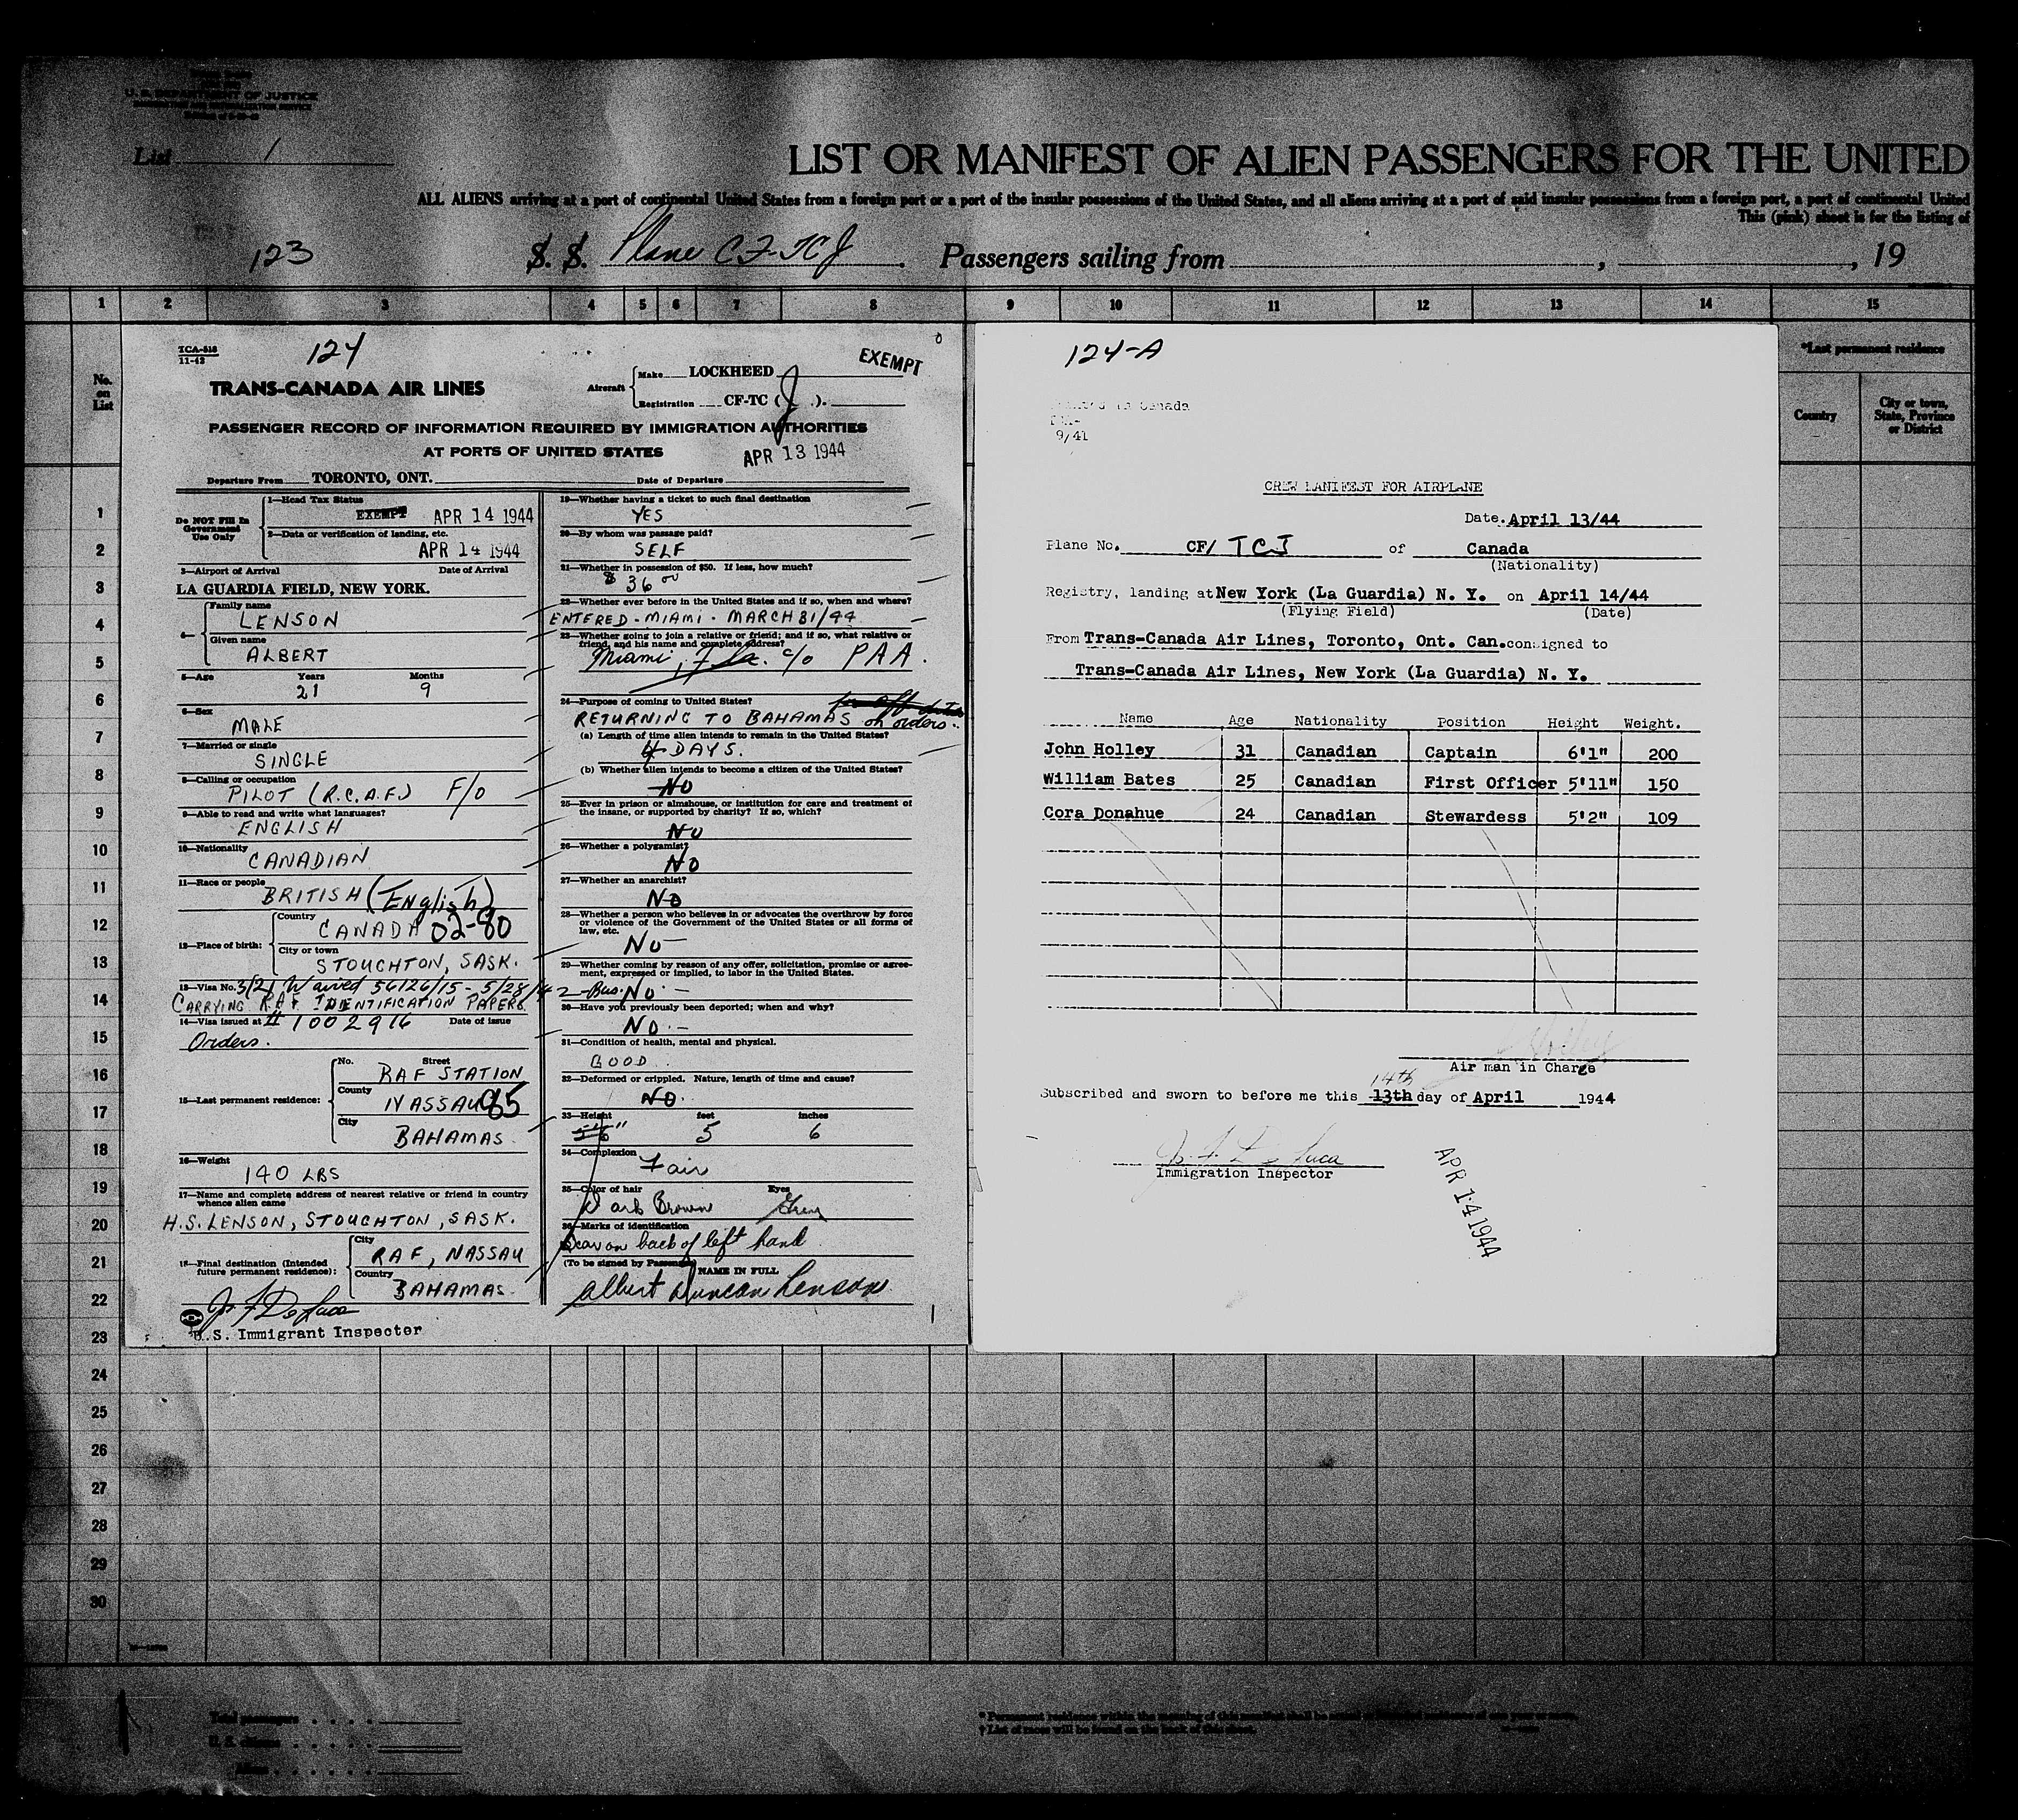 U. S. DEPARTMENT OF JUSTICE
List 1
LIST OR MANIFEST OF ALIEN PASSENGERS FOR THE UNITED
ALL ALIENS arriving at a port of continental United States from a foreign port or a port of the insular possessions of the United States, and all aliens arriving at a port of said insular possessions from a foreign port, a port of continental United
This (pink) sheet is for the listing of
123 S. S. Plane CF-TCJ Passengers sailing from , , 19
1 2 3 4 5 6 7 8 9 10 11 12 13 14 15
No. on List
*Last permanent residence
Country
City or town, State, Province or District
TCA-518
11-42
124
EXEMPT
TRANS-CANADA AIR LINES
Aircraft Make LOCKHEED
Registration CF-TC ( J ).
PASSENGER RECORD OF INFORMATION REQUIRED BY IMMIGRATION AUTHORITIES
AT PORTS OF UNITED STATES
APR 13 1944
Departure From TORONTO, ONT. Date of Departure
Do NOT Fill In Government Use Only
1—Head Tax Status
EXEMPT APR 14 1944
2—Data or verification of landing, etc.
APR 14 1944
3—Airport of Arrival Date of Arrival
LA GUARDIA FIELD, NEW YORK.
4— Family name
LENSON
Given name
ALBERT
5—Age Years Months
21 9
6—Sex
MALE
7—Married or single
SINGLE
8—Calling or occupation
PILOT (R.C.A.F.) F/O
9—Able to read and write what languages?
ENGLISH
10—Nationality
CANADIAN
11—Race or people
BRITISH (English)
12—Place of birth:
Country
CANADA 02-80
City or town
STOUGHTON, SASK.
13—Visa No. 3(2) Waived 56126/15 - 5/28/42 - Bus.
CARRYING RAF IDENTIFICATION PAPERS
14—Visa issued at # 1002916 Date of issue
Orders.
15—Last permanent residence:
No. Street
RAF STATION
County
NASSAU 95
City
BAHAMAS
16—Weight
140 LBS
17—Name and complete address of nearest relative or friend in country
whence alien came
H.S. LENSON, STOUGHTON, SASK.
18—Final destination (Intended
future permanent residence):
City
RAF, NASSAU
Country
BAHAMAS
J. F. De Luca
U.S. Immigrant Inspector
19—Whether having a ticket to such final destination
YES
20—By whom was passage paid?
SELF
21—Whether in possession of $50. If less, how much?
$ 36 00
22—Whether ever before in the United States and if so, when and where?
ENTERED - MIAMI - MARCH 31/44
23—Whether going to join a relative or friend; and if so, what relative or
friend, and his name and complete address?
Miami, Fla. c/o PAA.
24—Purpose of coming to United States?
RETURNING TO BAHAMAS on orders.
(a) Length of time alien intends to remain in the United States?
4 DAYS.
(b) Whether alien intends to become a citizen of the United States?
NO
25—Ever in prison or almshouse, or institution for care and treatment of
the insane, or supported by charity? If so, which?
NO
26—Whether a polygamist?
NO
27—Whether an anarchist?
NO
28—Whether a person who believes in or advocates the overthrow by force
or violence of the Government of the United States or all forms of
law, etc.
NO
29—Whether coming by reason of any offer, solicitation, promise or agree-
ment, expressed or implied, to labor in the United States.
NO
30—Have you previously been deported; when and why?
NO.
31—Condition of health, mental and physical.
GOOD
32—Deformed or crippled. Nature, length of time and cause?
NO.
33—Height feet inches
5'6" 5 6
34—Complexion
Fair
35—Color of hair Eyes
Dark Brown Grey
36—Marks of identification
Scar on back of left hand
(To be signed by Passenger) NAME IN FULL
Albert Duncan Lenson
124-A
Canada
9/41
CREW MANIFEST FOR AIRPLANE
Date. April 13/44
Plane No. CF/ TCJ of Canada
(Nationality)
Registry, landing at New York (La Guardia) N. Y. on April 14/44
(Flying Field) (Date)
From Trans-Canada Air Lines, Toronto, Ont. Can. consigned to
Trans-Canada Air Lines, New York (La Guardia) N. Y.
Name Age Nationality Position Height Weight.
John Holley 31 Canadian Captain 6'1" 200
William Bates 25 Canadian First Officer 5'11" 150
Cora Donahue 24 Canadian Stewardess 5'2" 109
Air man in Charge
14th
Subscribed and sworn to before me this 13th day of April 1944
J. F. De Luca
Immigration Inspector
APR 14 1944
1
2
3
4
5
6
7
8
9
10
11
12
13
14
15
16
17
18
19
20
21
22
23
24
25
26
27
28
29
30
Total passengers
U. S. citizens
Aliens
* Permanent residence within the meaning of this manifest shall be actual or intended residence of one year or more.
† List of races will be found on the back of this sheet.